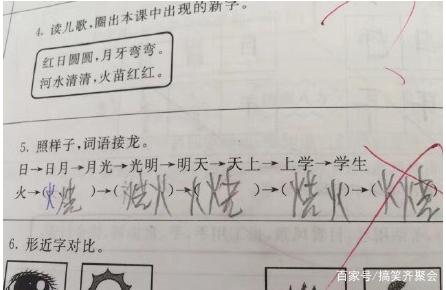 4. 读儿歌，圈出本课中出现的新字。
红日圆圆，月牙弯弯。
河水清清，火苗红红。
5. 照样子，词语接龙。
日→日月→月光→光明→明天→天上→上学→学生
火→(火烧)→(烧火)→(火烧)→(烧火)→(火烧
6. 形近字对比。
百家号/搞笑齐聚会